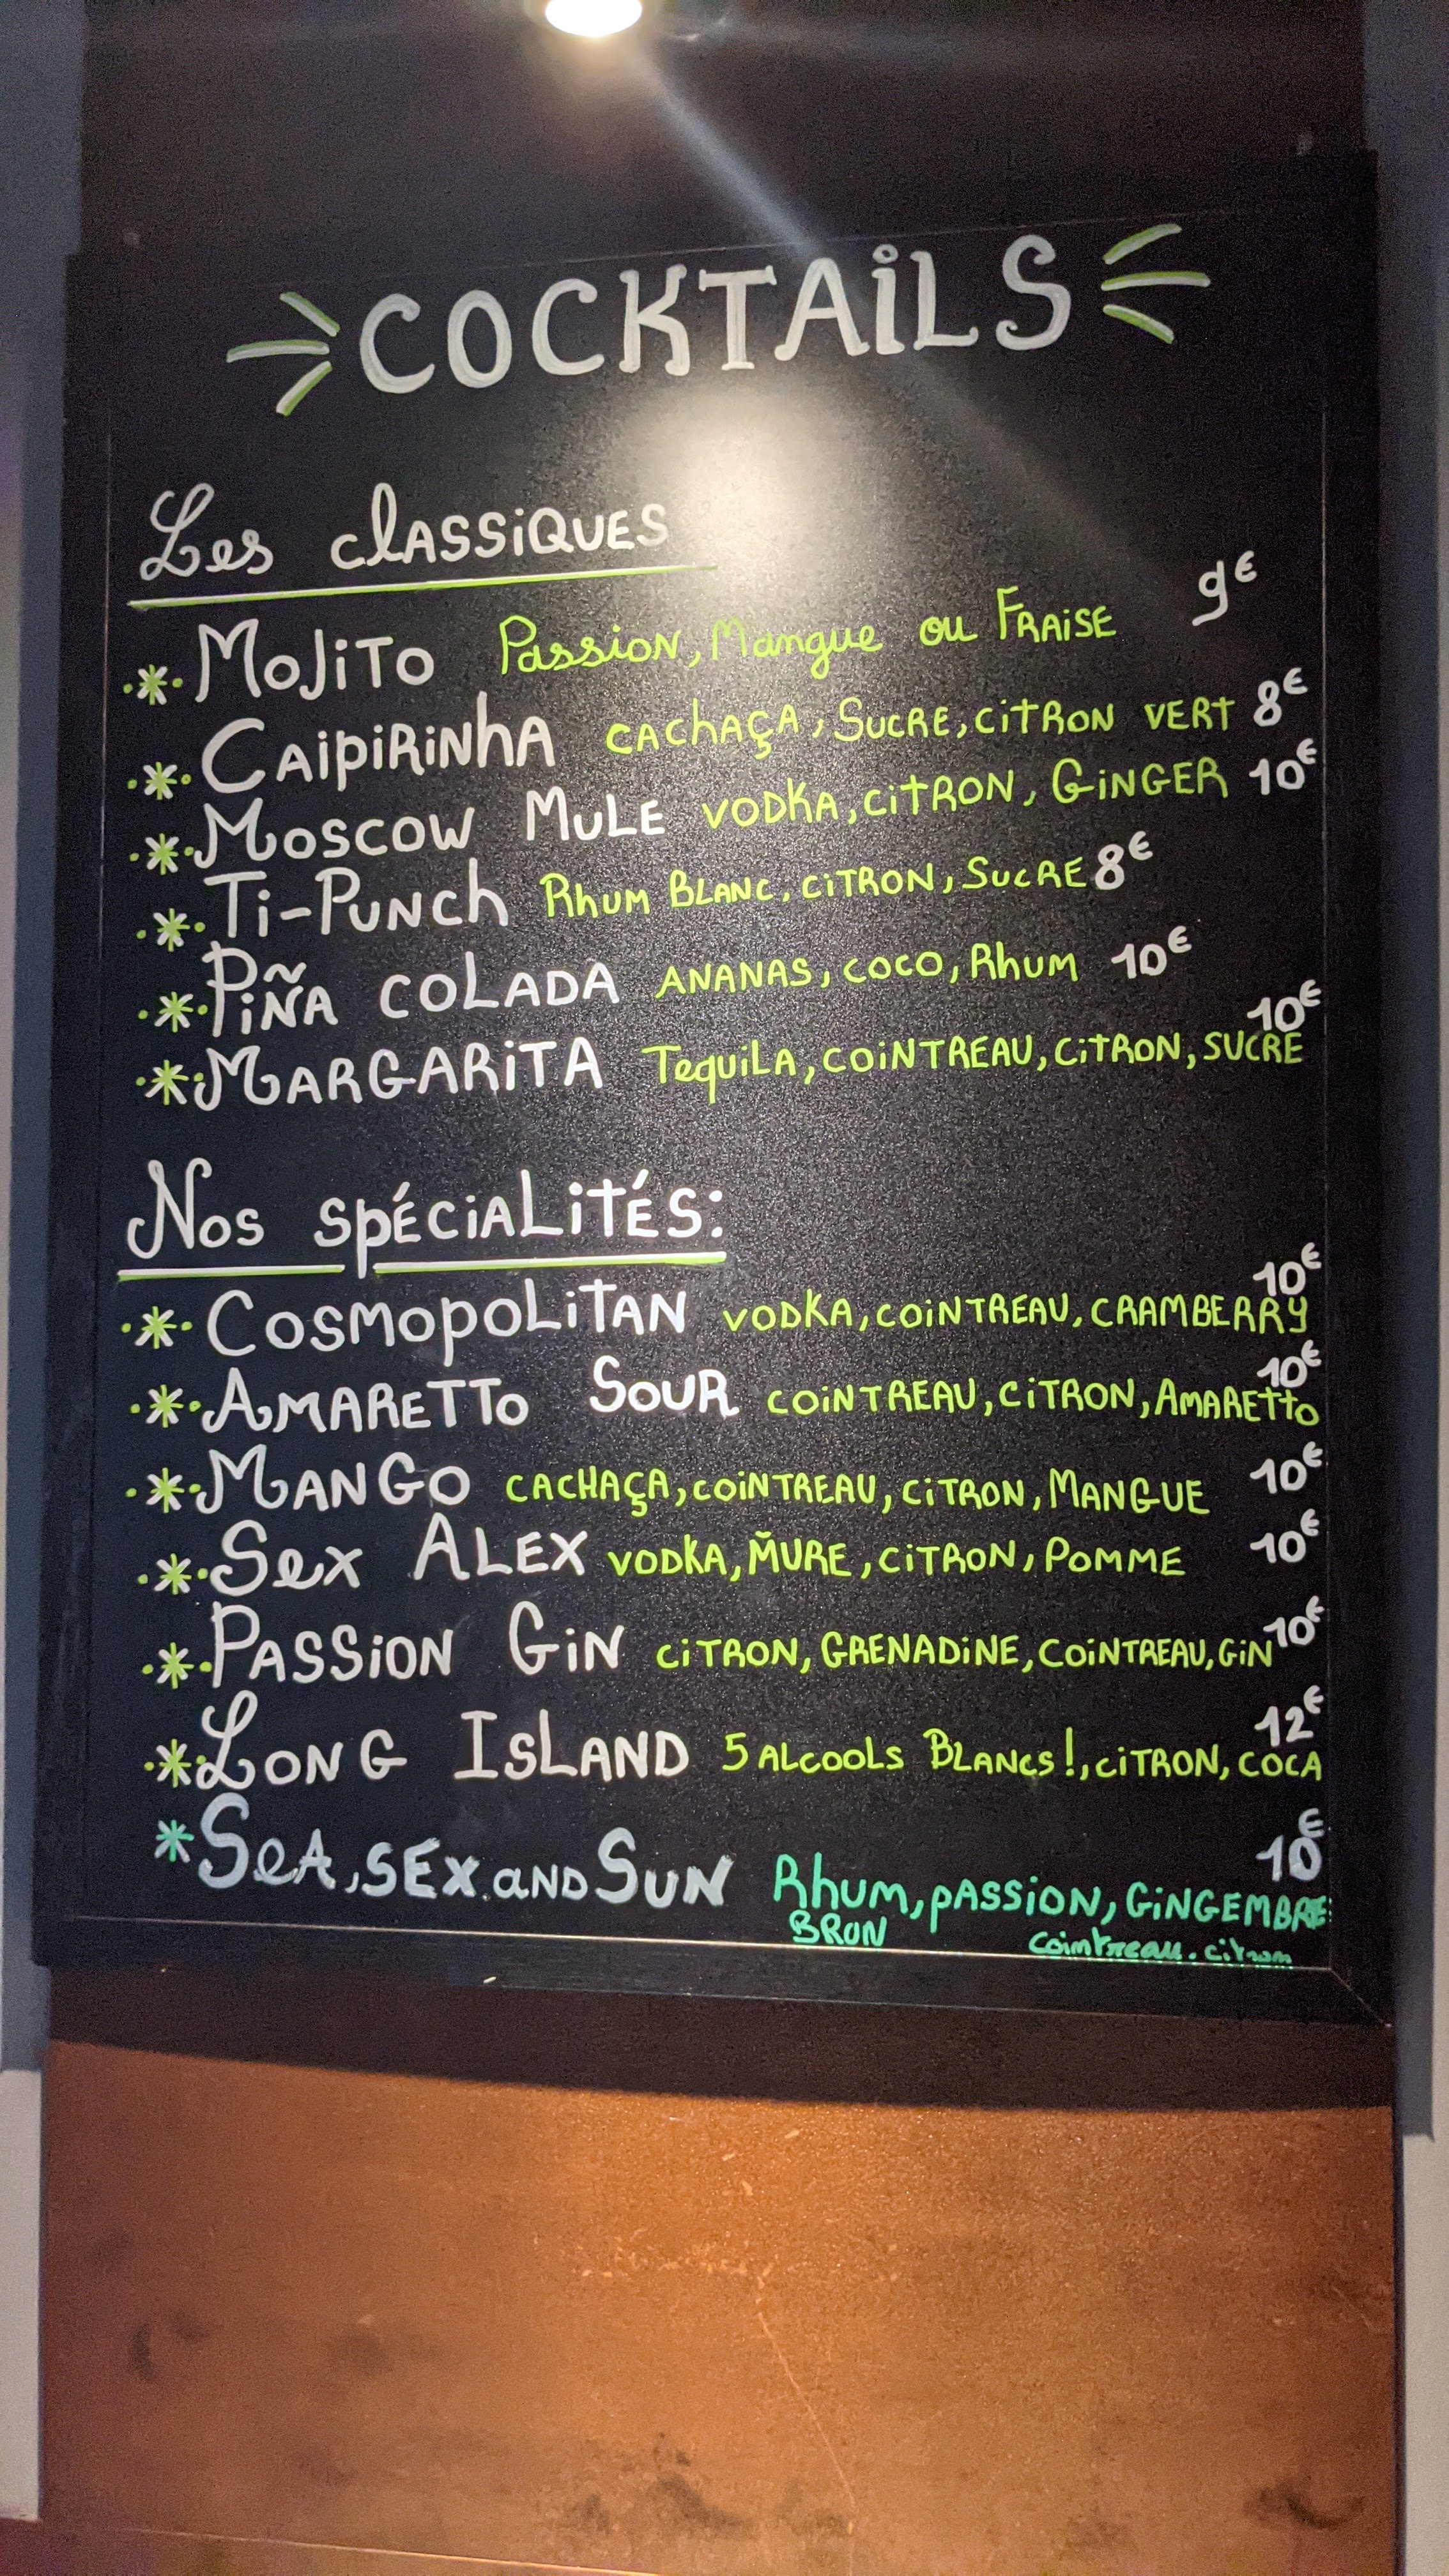 COCKTAILS
Les classiques
Mojito Passion, Mangue ou Fraise 9€
Caipirinha cachaça, sucre, citron vert 8€
Moscow Mule vodka, citron, Ginger 10€
Ti-Punch Rhum Blanc, citron, sucre 8€
Piña colada ananas, coco, Rhum 10€
Margarita Tequila, cointreau, citron, sucre 10€
Nos spécialités:
Cosmopolitan vodka, cointreau, cramberry 10€
Amaretto Sour cointreau, citron, Amaretto 10€
Mango cachaça, cointreau, citron, mangue 10€
Sex Alex vodka, mûre, citron, pomme 10€
Passion Gin citron, grenadine, cointreau, gin 10€
Long Island 5 alcools blancs!, citron, coca 12€
Sea, sex and Sun Rhum, passion, gingembre 10€
BRUN cointreau. citron